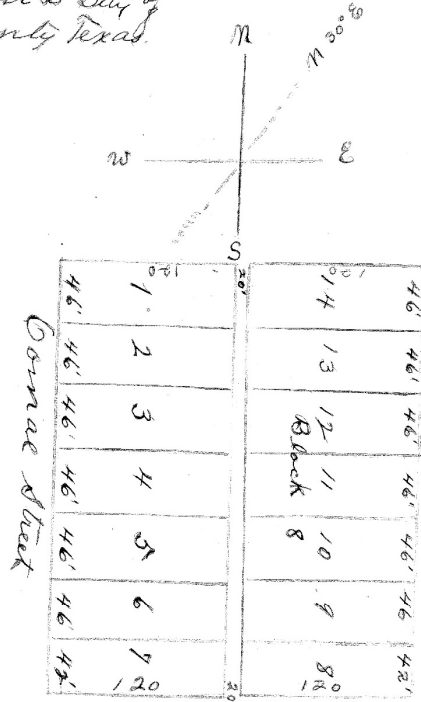 nty Texas.
N
N 30° E
W
E
S
120
20'
120
46' 1 14 46'
46' 2 13 46'
46' 3 12 46'
Block 8
46' 4 11 46'
46' 5 10 46'
46' 6 9 46
42' 7 8 42'
120
20
120
Comal Street